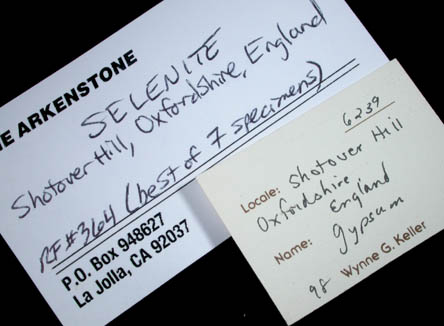 THE ARKENSTONE
SELENITE
Shotover Hill, Oxfordshire, England
RF#364 (best of 7 specimens)
P.O. Box 948627
La Jolla, CA 92037
6239
Locale: Shotover Hill
Oxfordshire
England
Name: gypsum
98 Wynne G. Keller